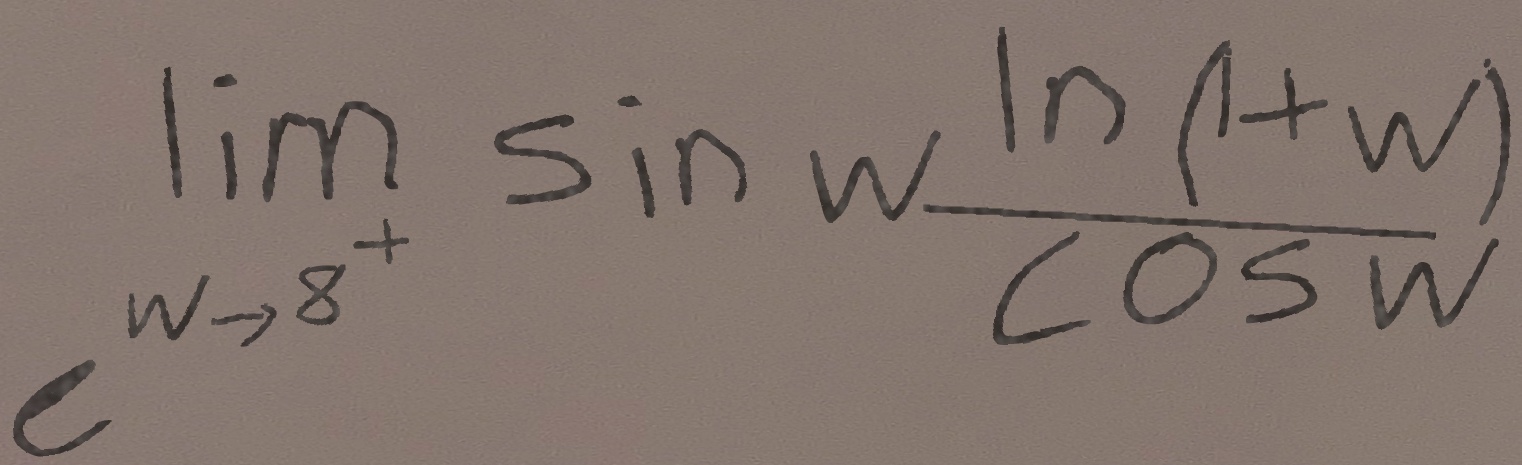 c^{\lim_{w \to 8^+} \sin w \frac{\ln(1+w)}{\cos w}}